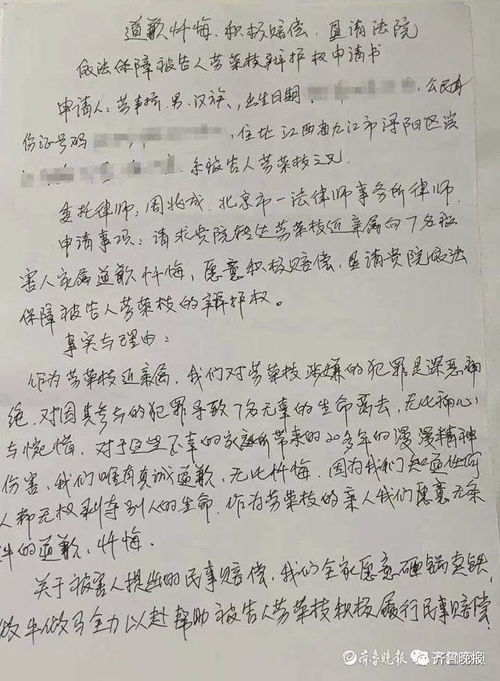 道歉忏悔、积极赔偿、恳请法院
依法保障被告人劳荣枝辩护权申请书
申请人：劳声桥，男，汉族，出生日期，公民身
份证号码，住址江西省九江市浔阳区滨
，系被告人劳荣枝之兄。
委托律师：周兆成，北京市一法律师事务所律师。
申请事项：请求贵院转达劳荣枝近亲属向7名被
害人家属道歉忏悔，愿意积极赔偿，恳请贵院依法
保障被告人劳荣枝的辩护权。
事实与理由：
作为劳荣枝近亲属，我们对劳荣枝涉嫌的犯罪是深恶痛
绝，对因其参与的犯罪导致7名无辜的生命离去，无比痛心
与惋惜，对于这些不幸的家庭所带来的20多年的漫漫精神
伤害，我们唯有真诚道歉，无比忏悔。因为我们知道任何
人都无权剥夺别人的生命。作为劳荣枝的亲人我们愿意无条
件的道歉，忏悔。
关于被害人提出的民事赔偿，我们全家愿意砸锅卖铁，
做牛做马全力以赴帮助被告人劳荣枝积极履行民事赔偿
齐鲁晚报 @齐鲁晚报